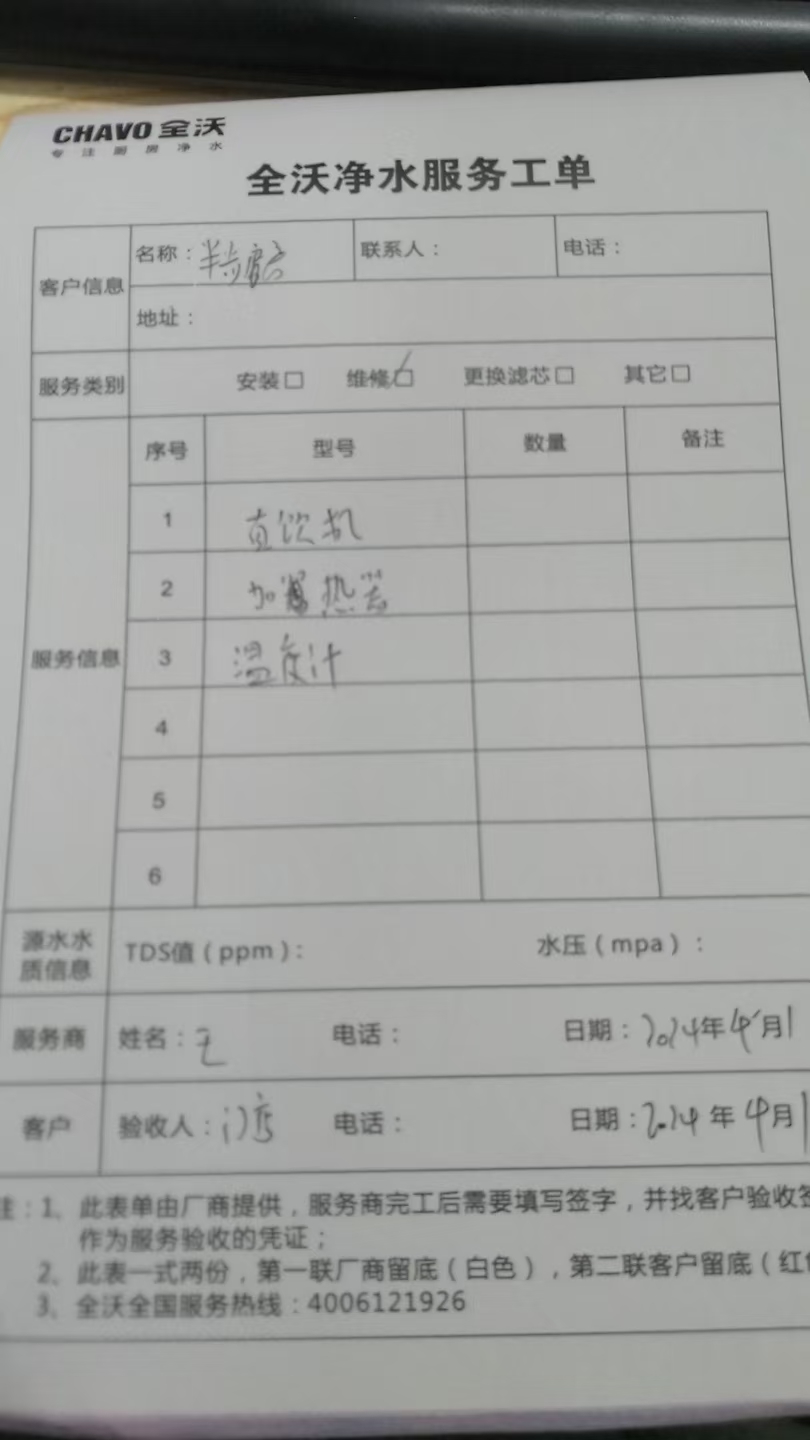 CHAVO 全沃
专注厨房净水
全沃净水服务工单
客户信息
名称：半步 联系人： 电话：
地址：
服务类别 安装□ 维修□ 更换滤芯□ 其它□
服务信息
序号 型号 数量 备注
1 直饮机
2 加热器
3 温度计
4
5
6
源水水质信息 TDS值（ppm）： 水压（mpa）：
服务商 姓名：王 电话： 日期：2024年4月1
客户 验收人：门店 电话： 日期：2024年4月1
注：1、此表单由厂商提供，服务商完工后需要填写签字，并找客户验收签
作为服务验收的凭证；
2、此表一式两份，第一联厂商留底（白色），第二联客户留底（红
3、全沃全国服务热线：4006121926